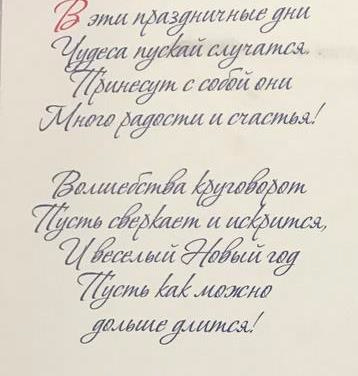 В эти праздничные дни
Чудеса пускай случатся.
Принесут с собой они
Много радости и счастья!
Волшебства круговорот
Пусть сверкает и искрится,
И веселый Новый год
Пусть как можно
дольше длится!